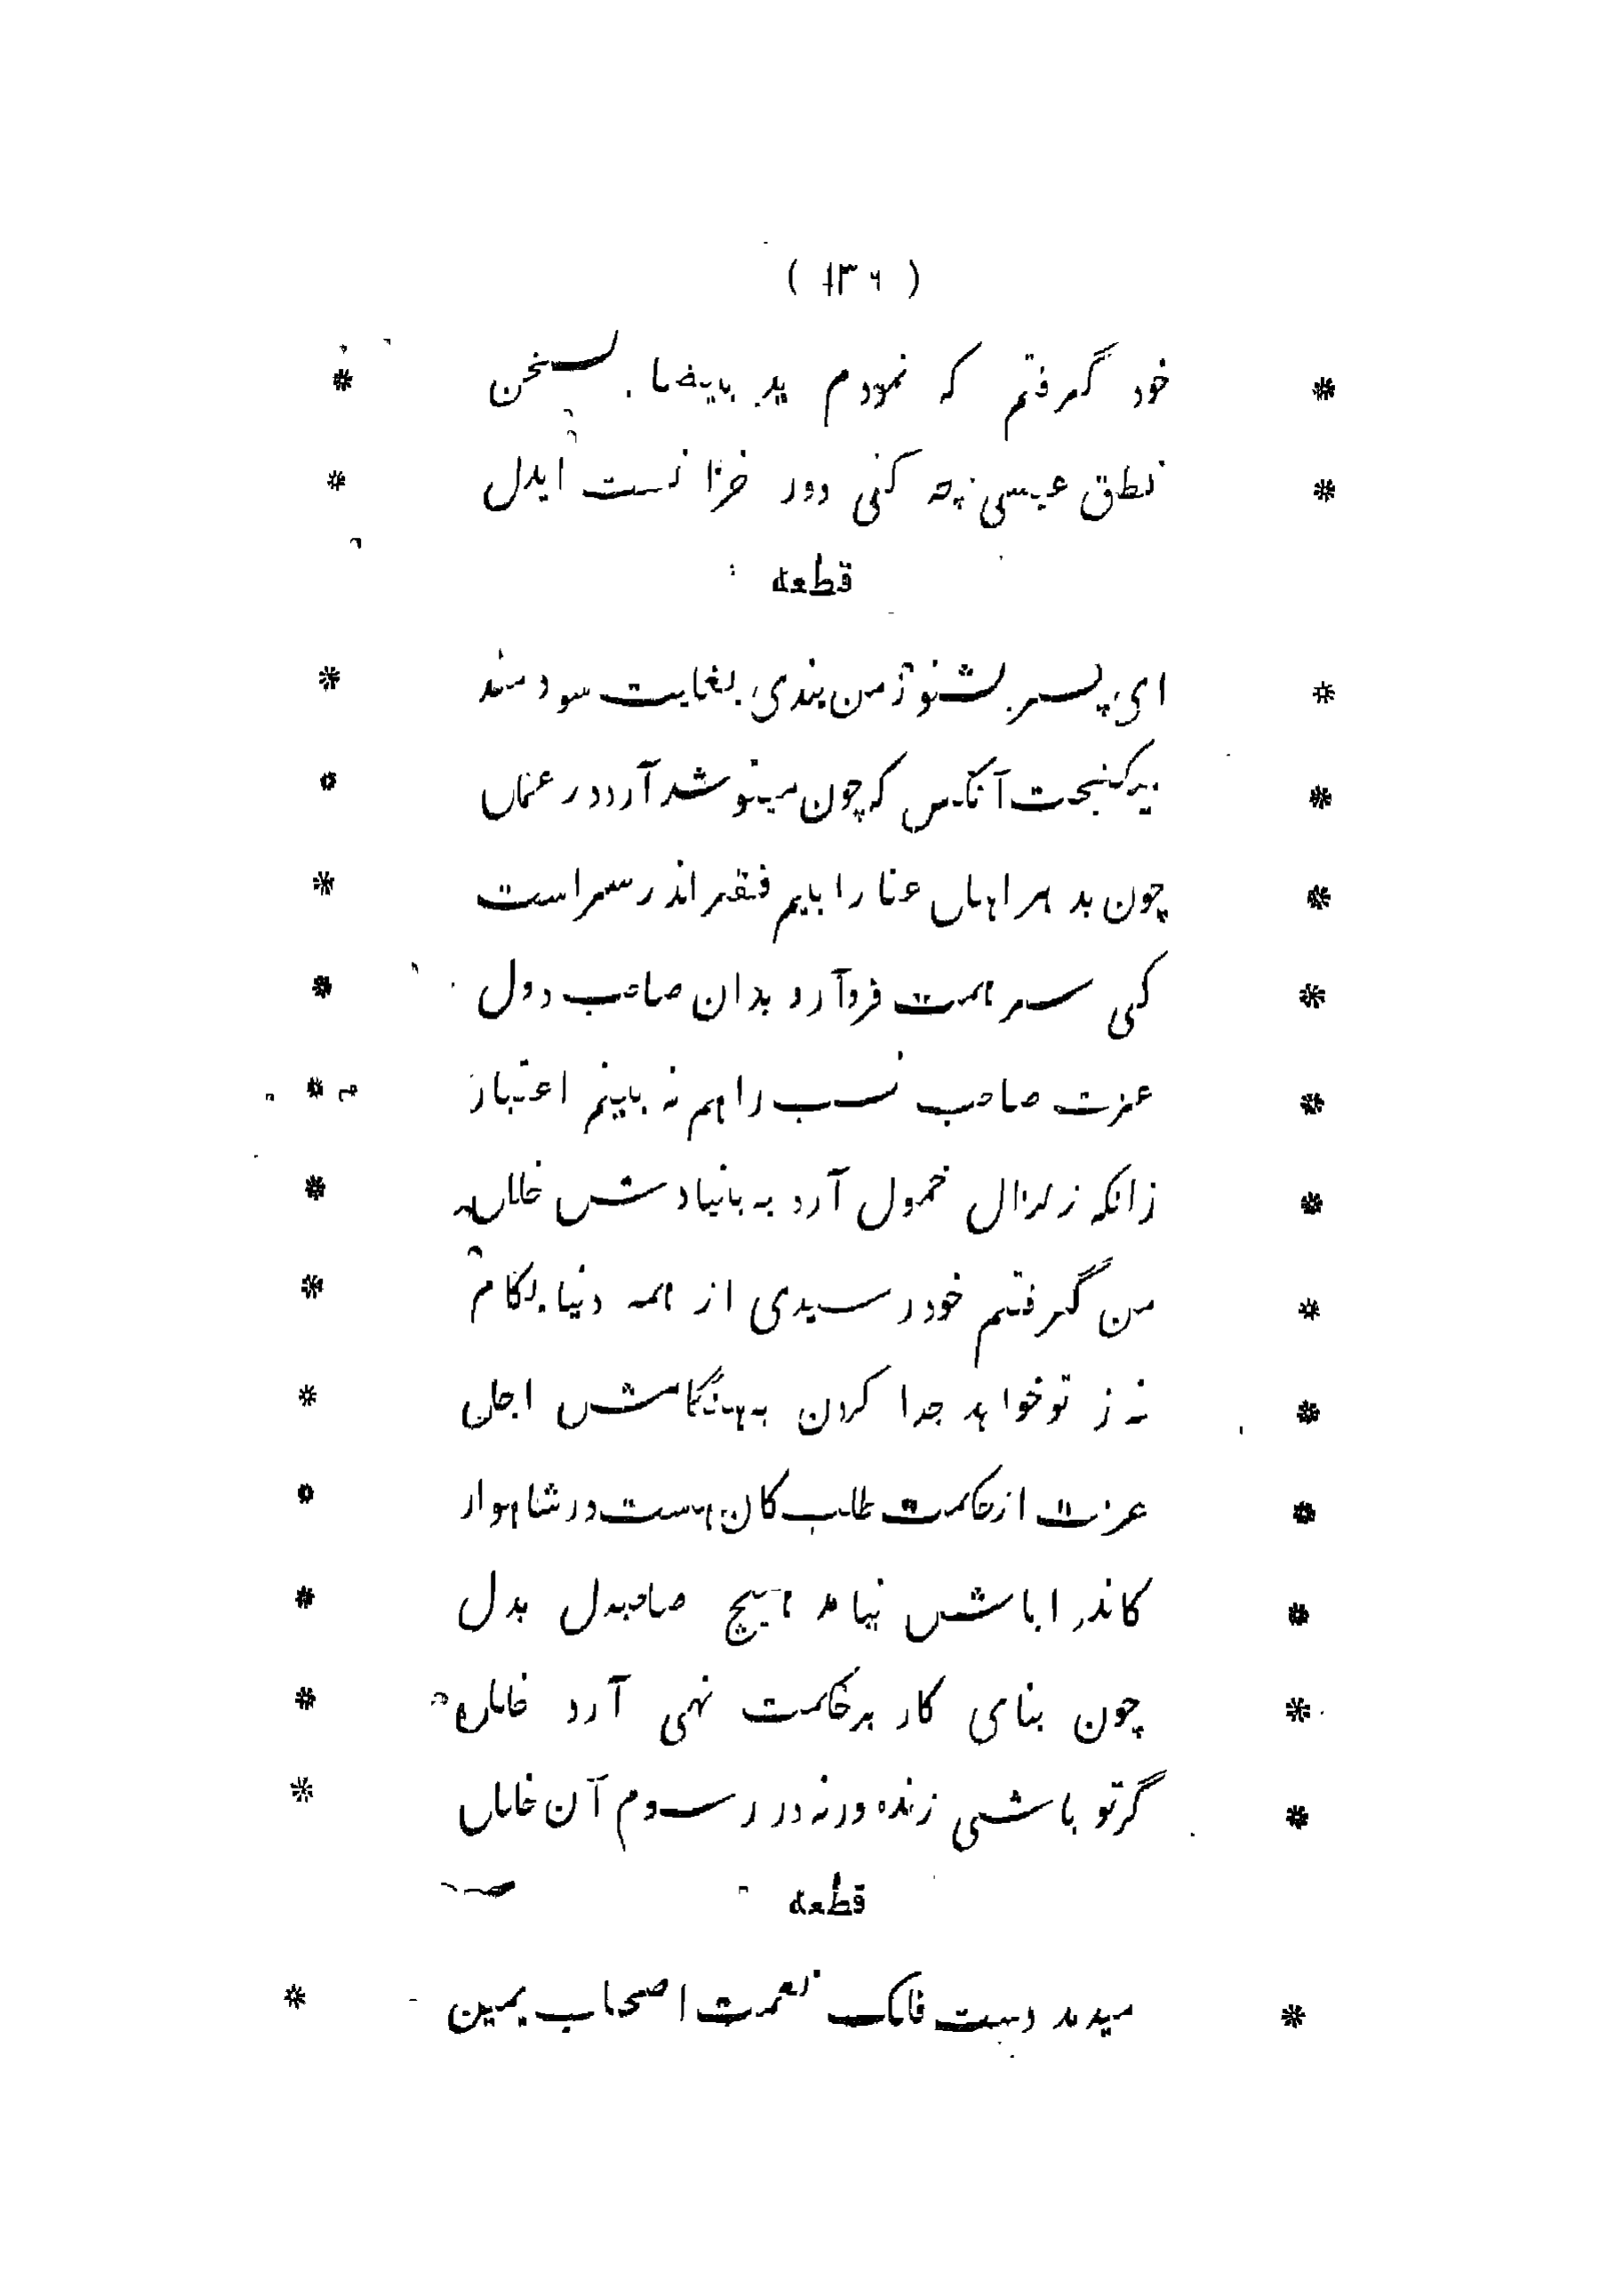 ( ١٣٦ )
* خود گرفتم که نمودم ید بیضا بسخن *
* نطق عیسی چه کنی دور خرانست ایدل *
قطعه
* ای پسر بشنو ز من پندی بغایت سودمند *
* بیر کنجت آنکس که چون مینو شد آرد در عمل *
* چون بد هر اهل غنا را بیم فقر اندر سراست *
* کی سر همت فرو آرد بدان صاحب دول *
* عزت صاحب نسب را هم نه بینم اعتبار *
* زانکه زلزال خمول آرد به بنیادش خلل *
* من گرفتم خود رسیدی از همه دنیا بکام *
* نه ز تو خواهد جدا کردن به هنگامش اجل *
* عزت از حکمت طلب کان هست در شاهوار *
* کاندر اباش نیامد هیچ صاحبدل بدل *
* چون بنای کار بر حکمت نهی آرد خلل *
* گر تو باشی زنده ورنه در رسوم آن خلل *
قطعه
* میدهد دست فلک نعمت اصحاب یمین *